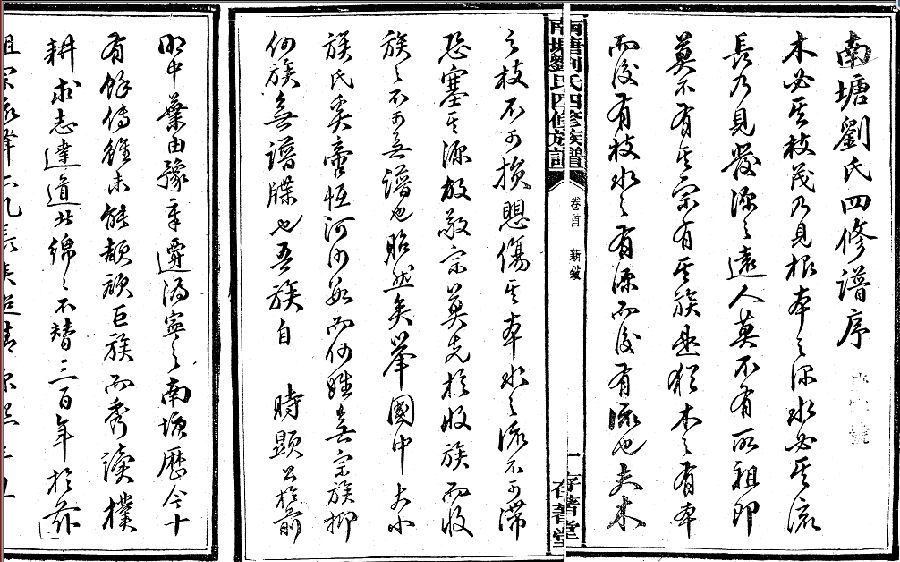 南塘劉氏四修譜序
木必其枝茂乃見根本之深水必其流
長乃見發源之遠人莫不有所祖即
莫不有其宗有其族是猶木之有本
而後有枝水之有源而後有流也夫木
南塘劉氏四修族譜
卷首
新敘
一
存著堂
之枝不可損懸傷其本水之流不可滯
恐塞其源故敬宗莫先於收族而收
族之不可無譜也昭然矣舉國中大小
族氏奚啻恆河沙數而何姓無宗族抑
何族無譜牒也吾族自 時顯公於前
明中葉由豫章遷馮寧之南塘歷今十
有餘傳雖未能頡頏巨族而秀讀樸
耕求志達道者綿綿不替三百年於茲